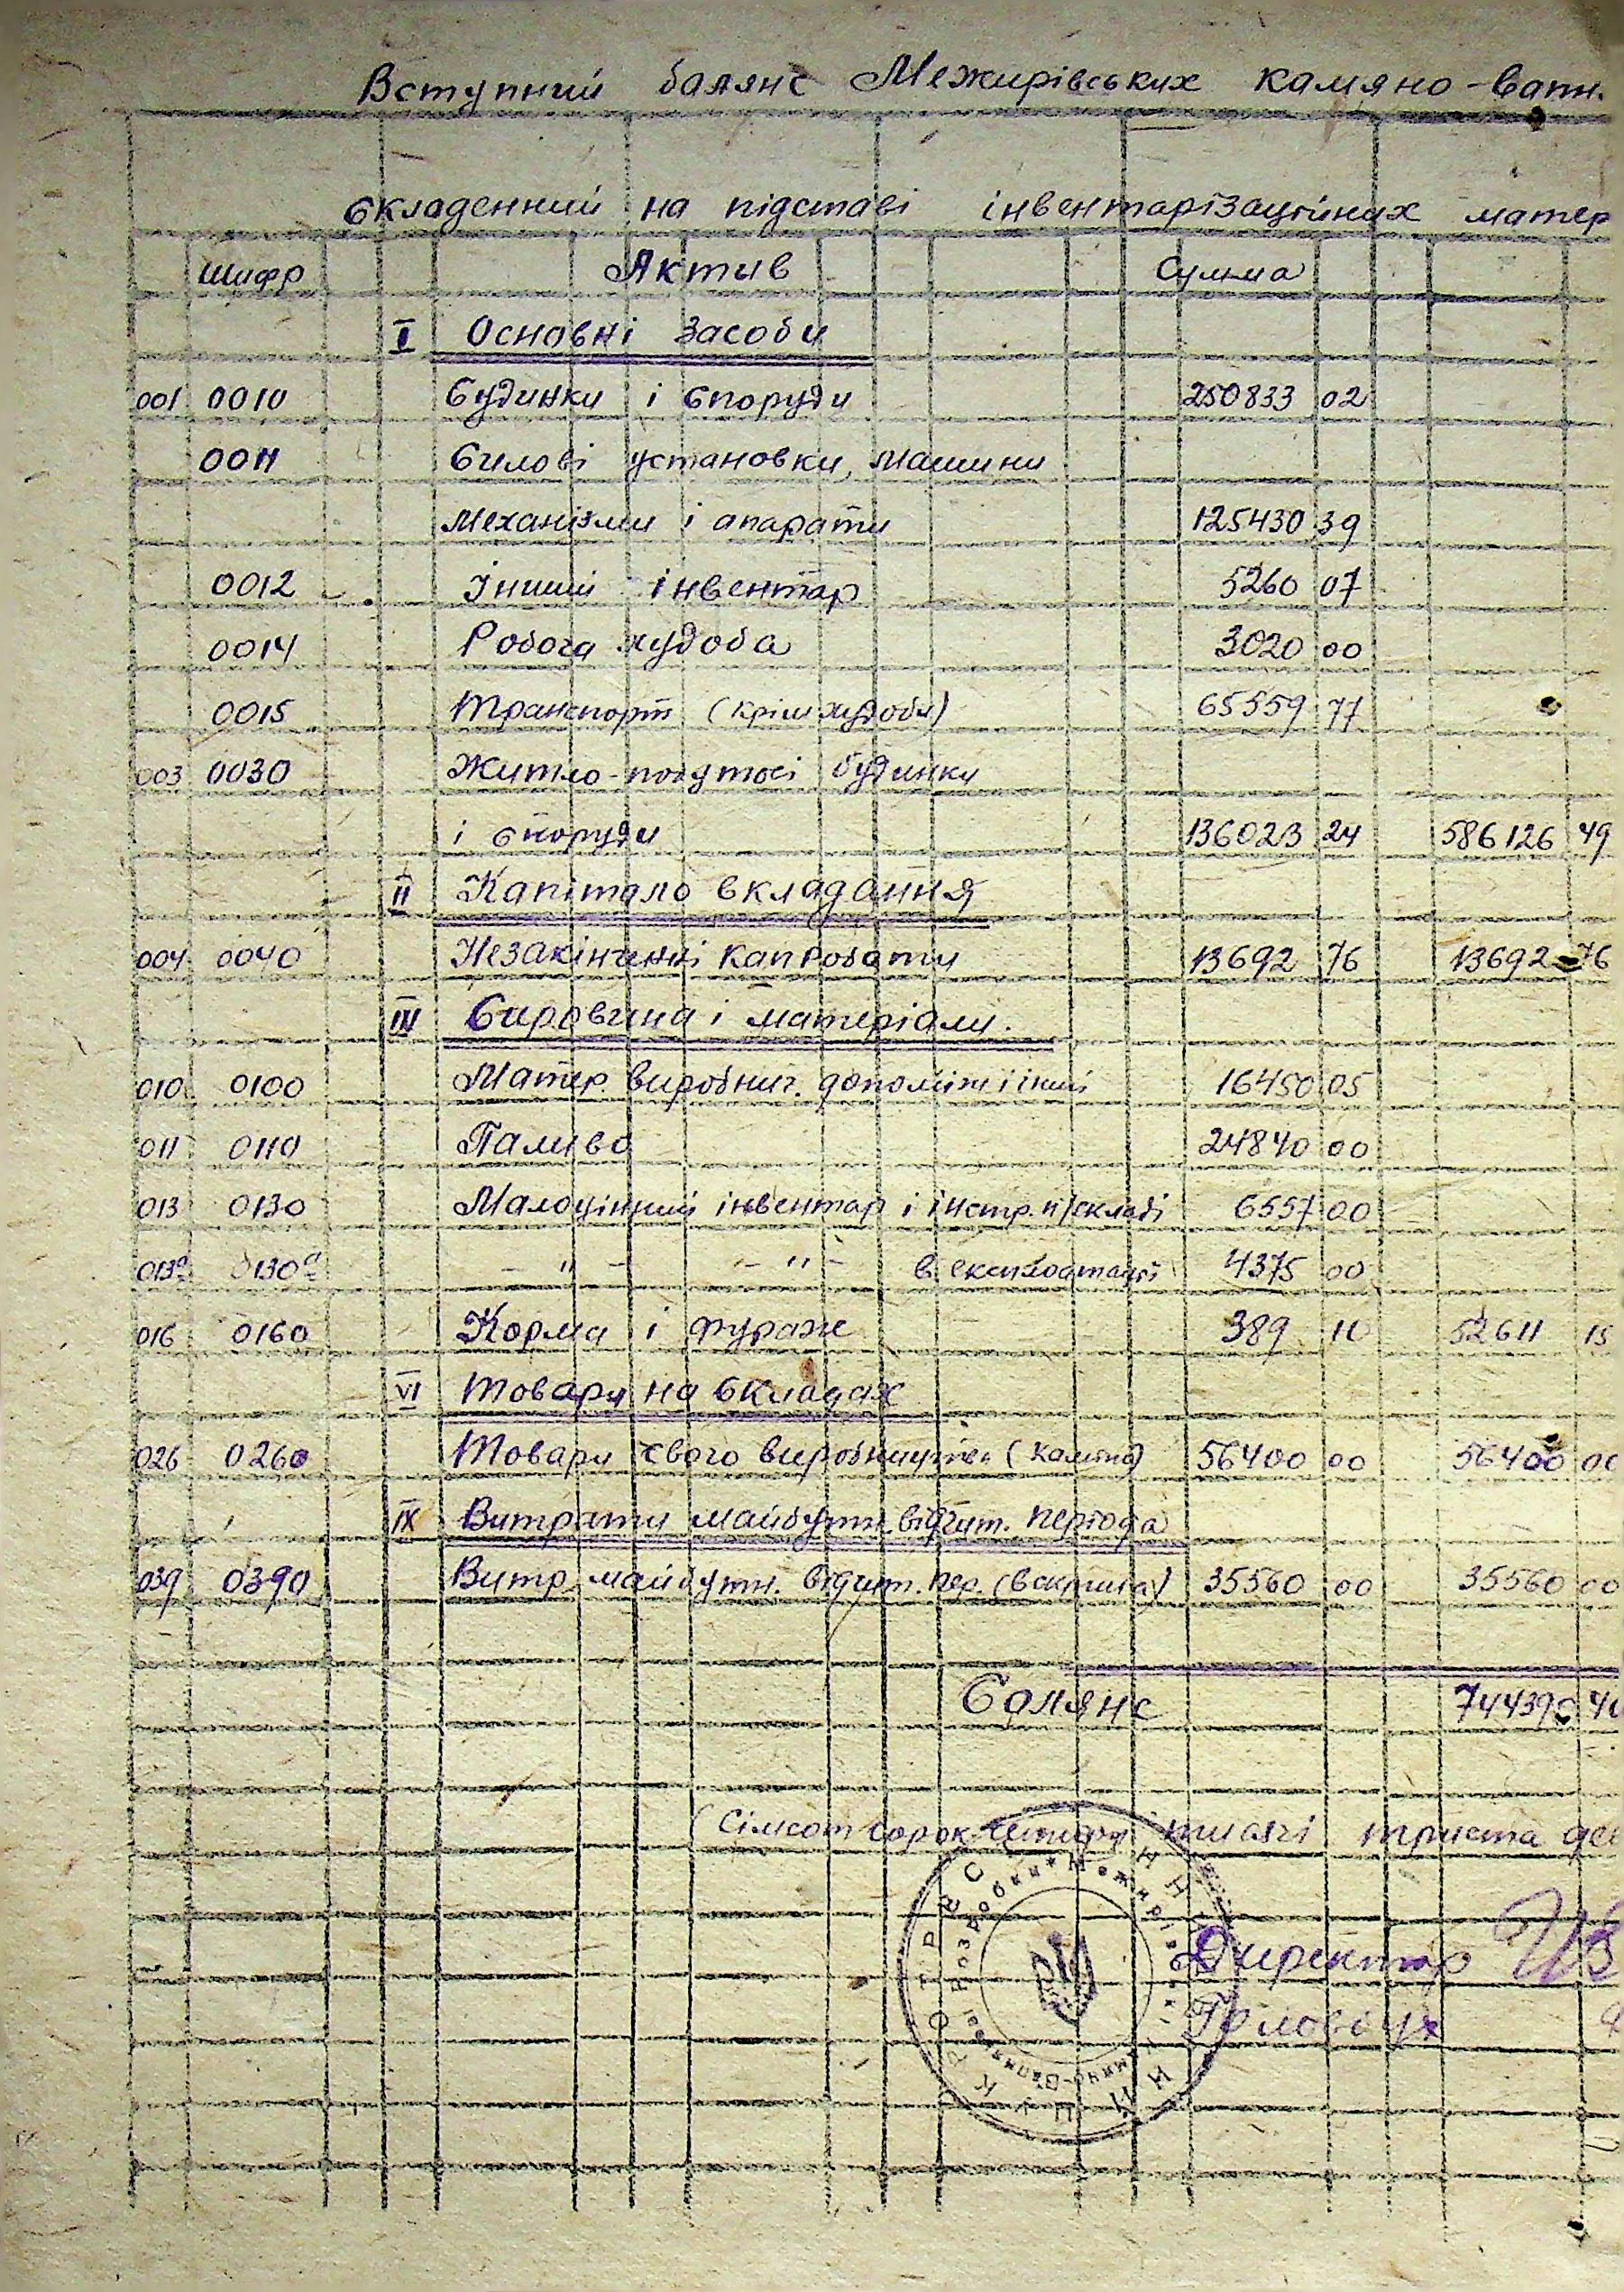 Вступний балянс Межирівських камяно-вапн.
складенний на підставі інвентарізаційних матер
Шифр Актыв Сумма
I Основні засоби
001 0010 Будинки і споруди 250833 02
0011 Силові установки, машини
механізми і апарати 125430 39
0012 Інший інвентар 5260 07
0014 Робоча худоба 3020 00
0015 Транспорт (крім худоби) 65559 77
003 0030 Житло-побутові будинки
і споруди 136023 24 586126 49
II Капітало вкладання
004 0040 Незакінченні капроботи 13692 76 13692 76
IV Сировина і матеріали.
010 0100 Матер. виробнич. допоміж і інші 16450 05
011 0110 Паливо 24840 00
013 0130 Малоцінний інвентар і інстр. н/складі 6557 00
013а 0130а – " – – " – в експлоатації 4375 00
016 0160 Корма і фураж 389 10 52611 15
VI Товари на складах
026 0260 Товари свого виробництва (каміння) 56400 00 56400 00
IX Витрати майбутн. відчит. періода
039 0390 Витр. майбутн. відчит. пер. (вскриша) 35560 00 35560 00
Балянс 744390 40
(Сімсот сорок чотири тисячі триста дев
Директор
Головбух